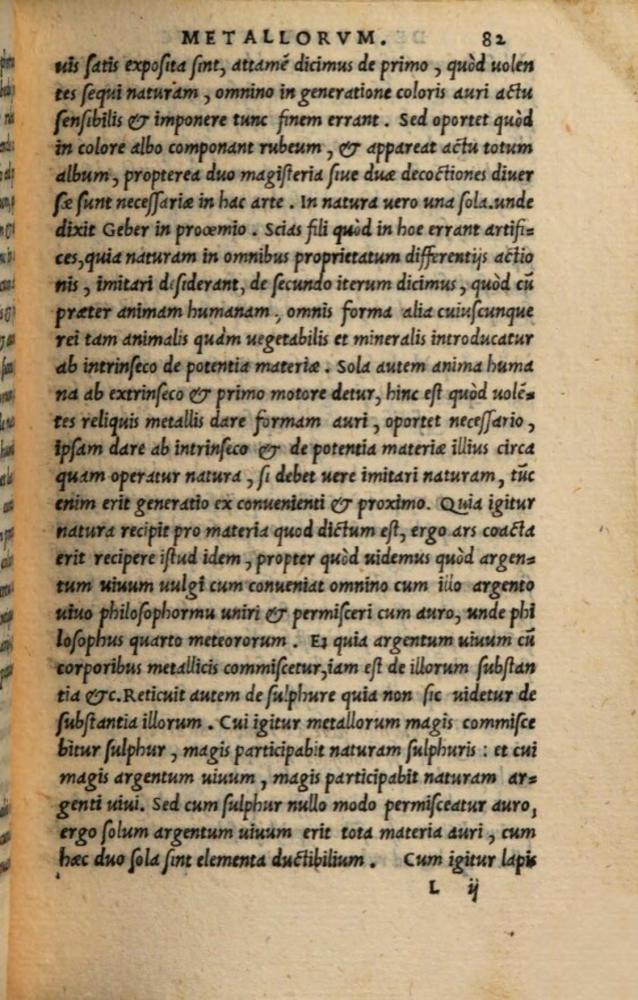 METALLORVM. 82
uis satis exposita sint, attamē dicimus de primo, quòd uolen
tes sequi naturam, omnino in generatione coloris auri actu
sensibilis & imponere tunc finem errant. Sed oportet quòd
in colore albo componant rubeum, & appareat actu totum
album, propterea duo magisteria siue duæ decoctiones diuer
sæ sunt necessariæ in hac arte. In natura uero una sola.unde
dixit Geber in proœmio. Scias fili quòd in hoc errant artifi=
ces,quia naturam in omnibus proprietatum differentijs actio
nis, imitari desiderant, de secundo iterum dicimus, quòd cū
præter animam humanam, omnis forma alia cuiuscunque
rei tam animalis quàm uegetabilis et mineralis introducatur
ab intrinseco de potentia materiæ. Sola autem anima huma
na ab extrinseco & primo motore detur, hinc est quòd uolē=
tes reliquis metallis dare formam auri, oportet necessario,
ipsam dare ab intrinseco & de potentia materiæ illius circa
quam operatur natura, si debet uere imitari naturam, tūc
enim erit generatio ex conuenienti & proximo. Quia igitur
natura recipit pro materia quod dictum est, ergo ars coacta
erit recipere istud idem, propter quòd uidemus quòd argen=
tum uiuum uulgi cum conueniat omnino cum illo argento
uiuo philosophormu uniri & permisceri cum auro, unde phi
losophus quarto meteororum. Et quia argentum uiuum cū
corporibus metallicis commiscetur,iam est de illorum substan
tia &c.Reticuit autem de sulphure quia non sic uidetur de
substantia illorum. Cui igitur metallorum magis commisce
bitur sulphur, magis participabit naturam sulphuris: et cui
magis argentum uiuum, magis participabit naturam ar=
genti uiui. Sed cum sulphur nullo modo permisceatur auro,
ergo solum argentum uiuum erit tota materia auri, cum
hæc duo sola sint elementa ductibilium. Cum igitur lapis
L ij